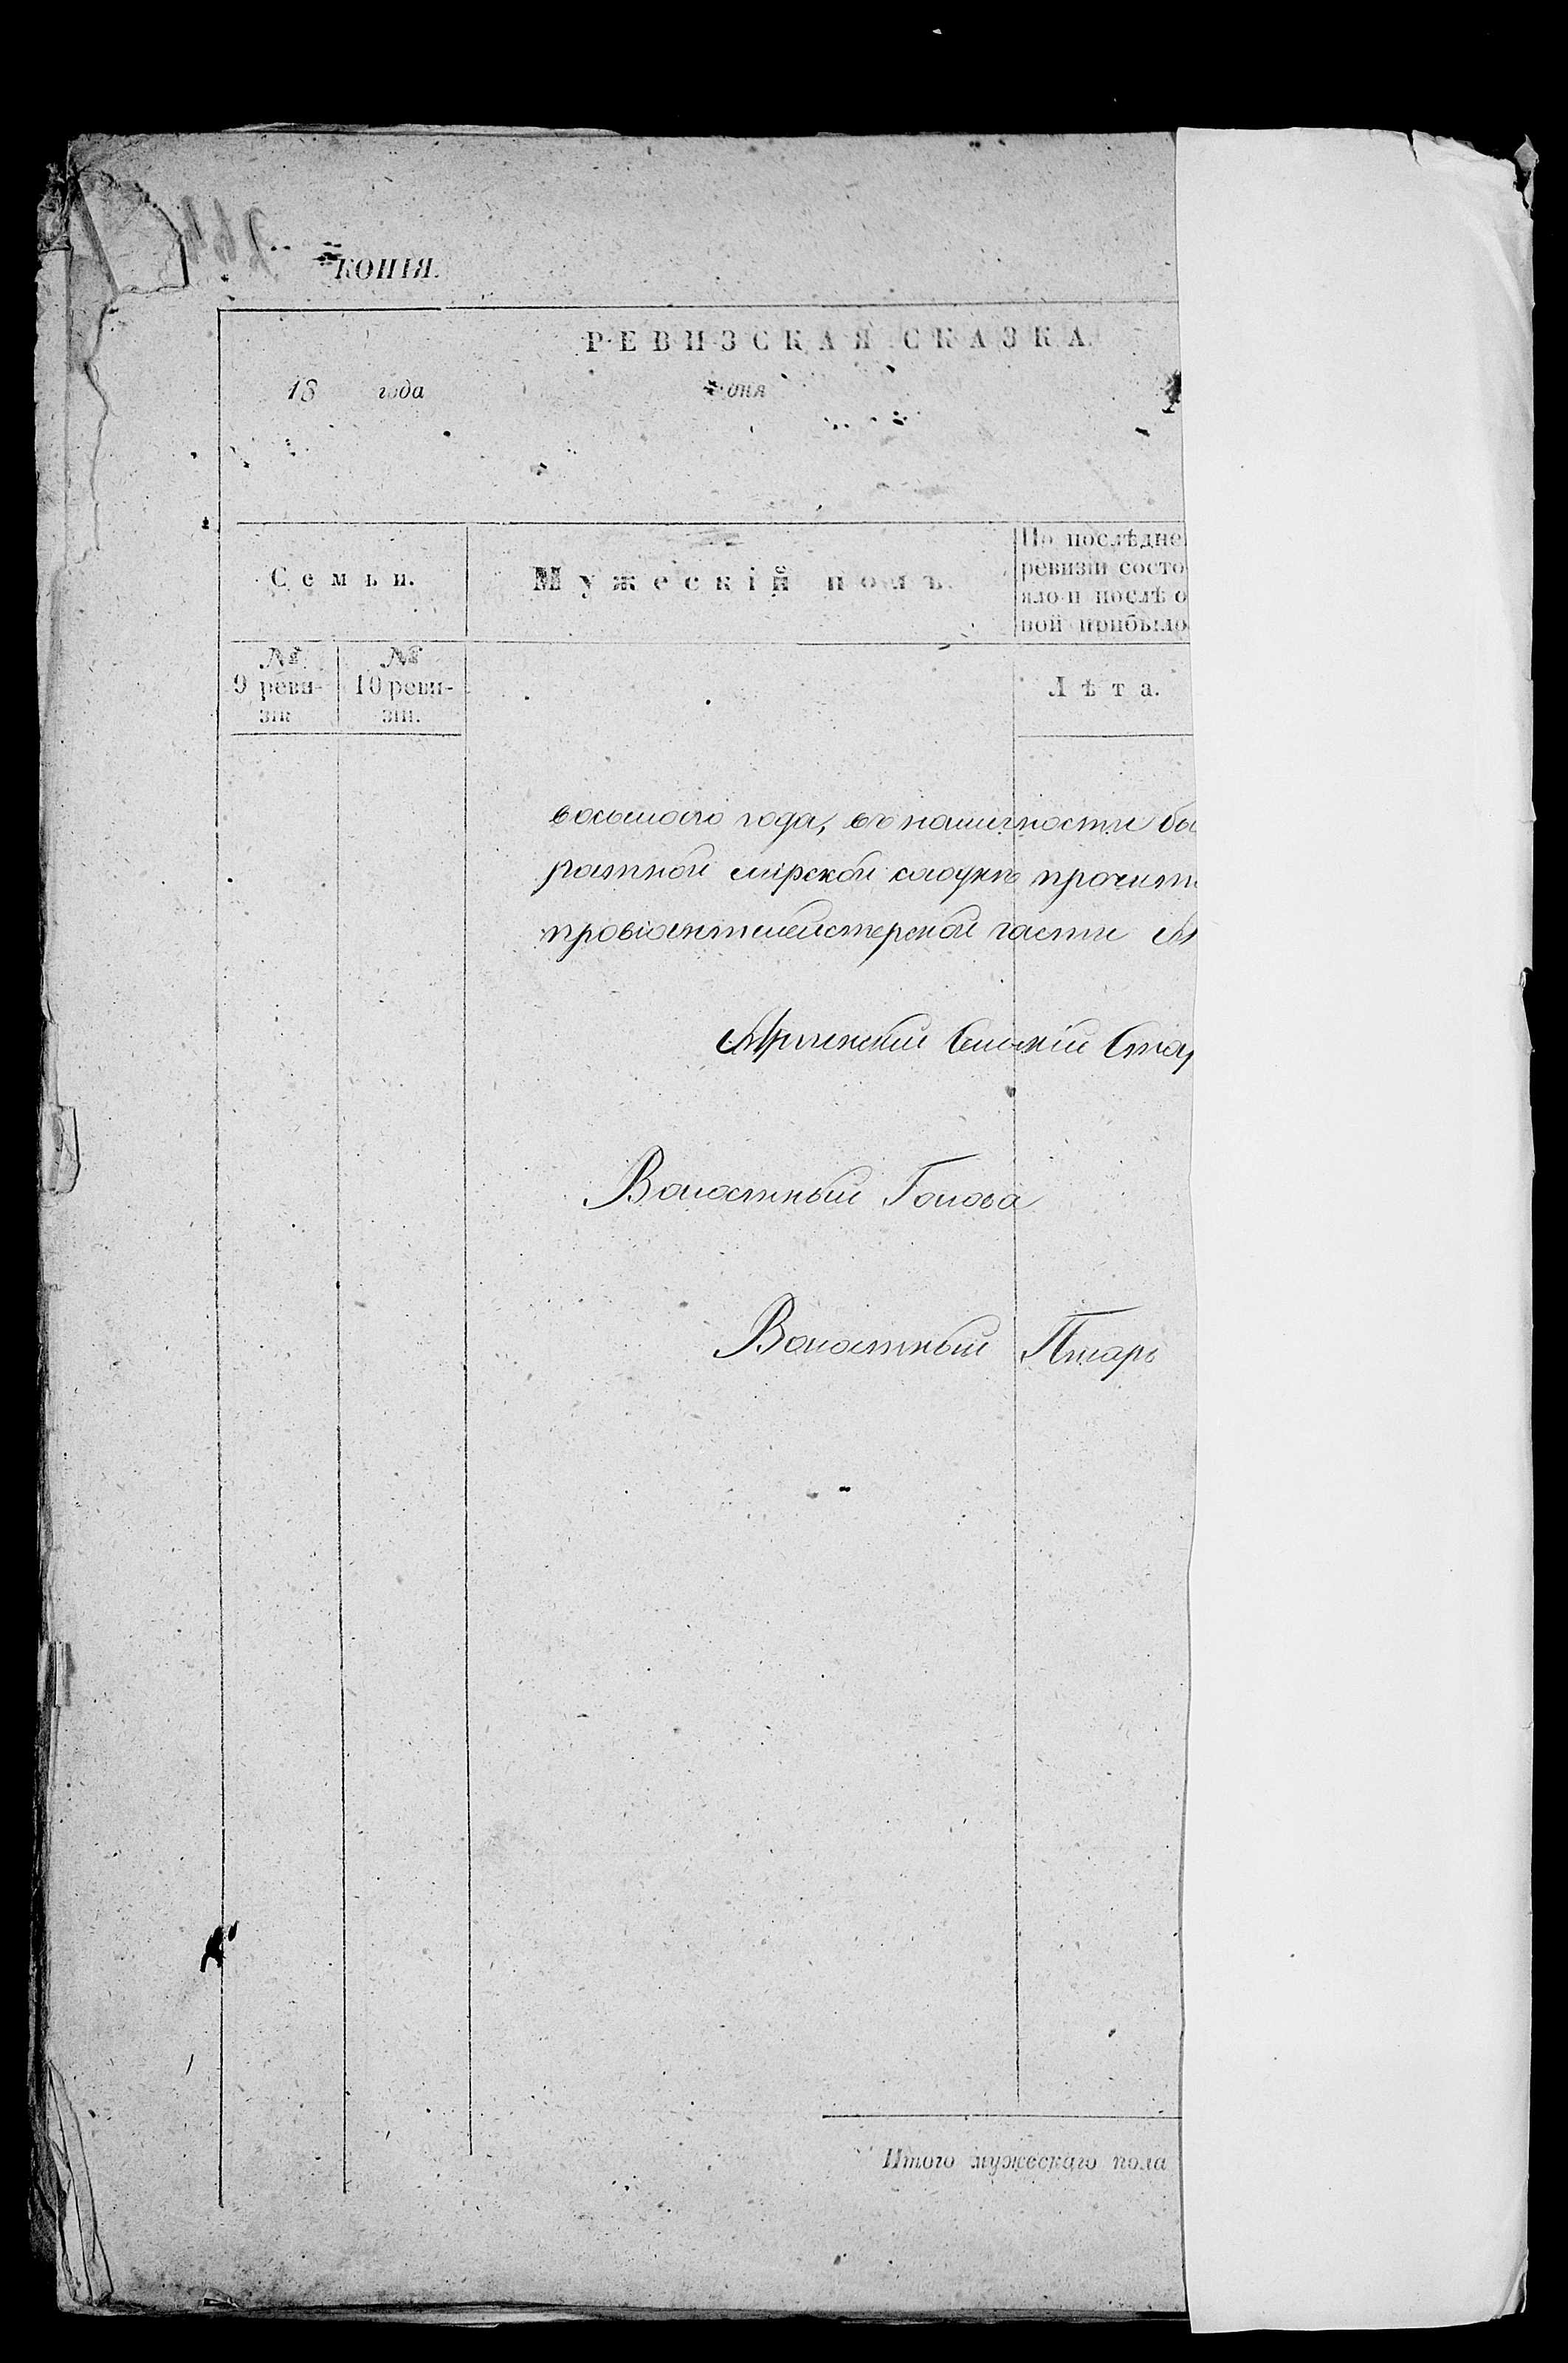 КОПІЯ.
РЕВИЗСКАЯ СКАЗКА.
18 года дня
Семьи.
Мужескій полъ.
По послѣдне
ревизіи состо
яло и послѣ о
ной прибыло
№ 9 реви-
зіи
№ 10 реви-
зіи.
Лѣта.
восьмого года, въ наличности бы
ратной мірской сходкѣ прочит
провіантмейстерской части
Сельскій Стар
Волостный Голова
Волостный Писарь
Итого мужескаго пола